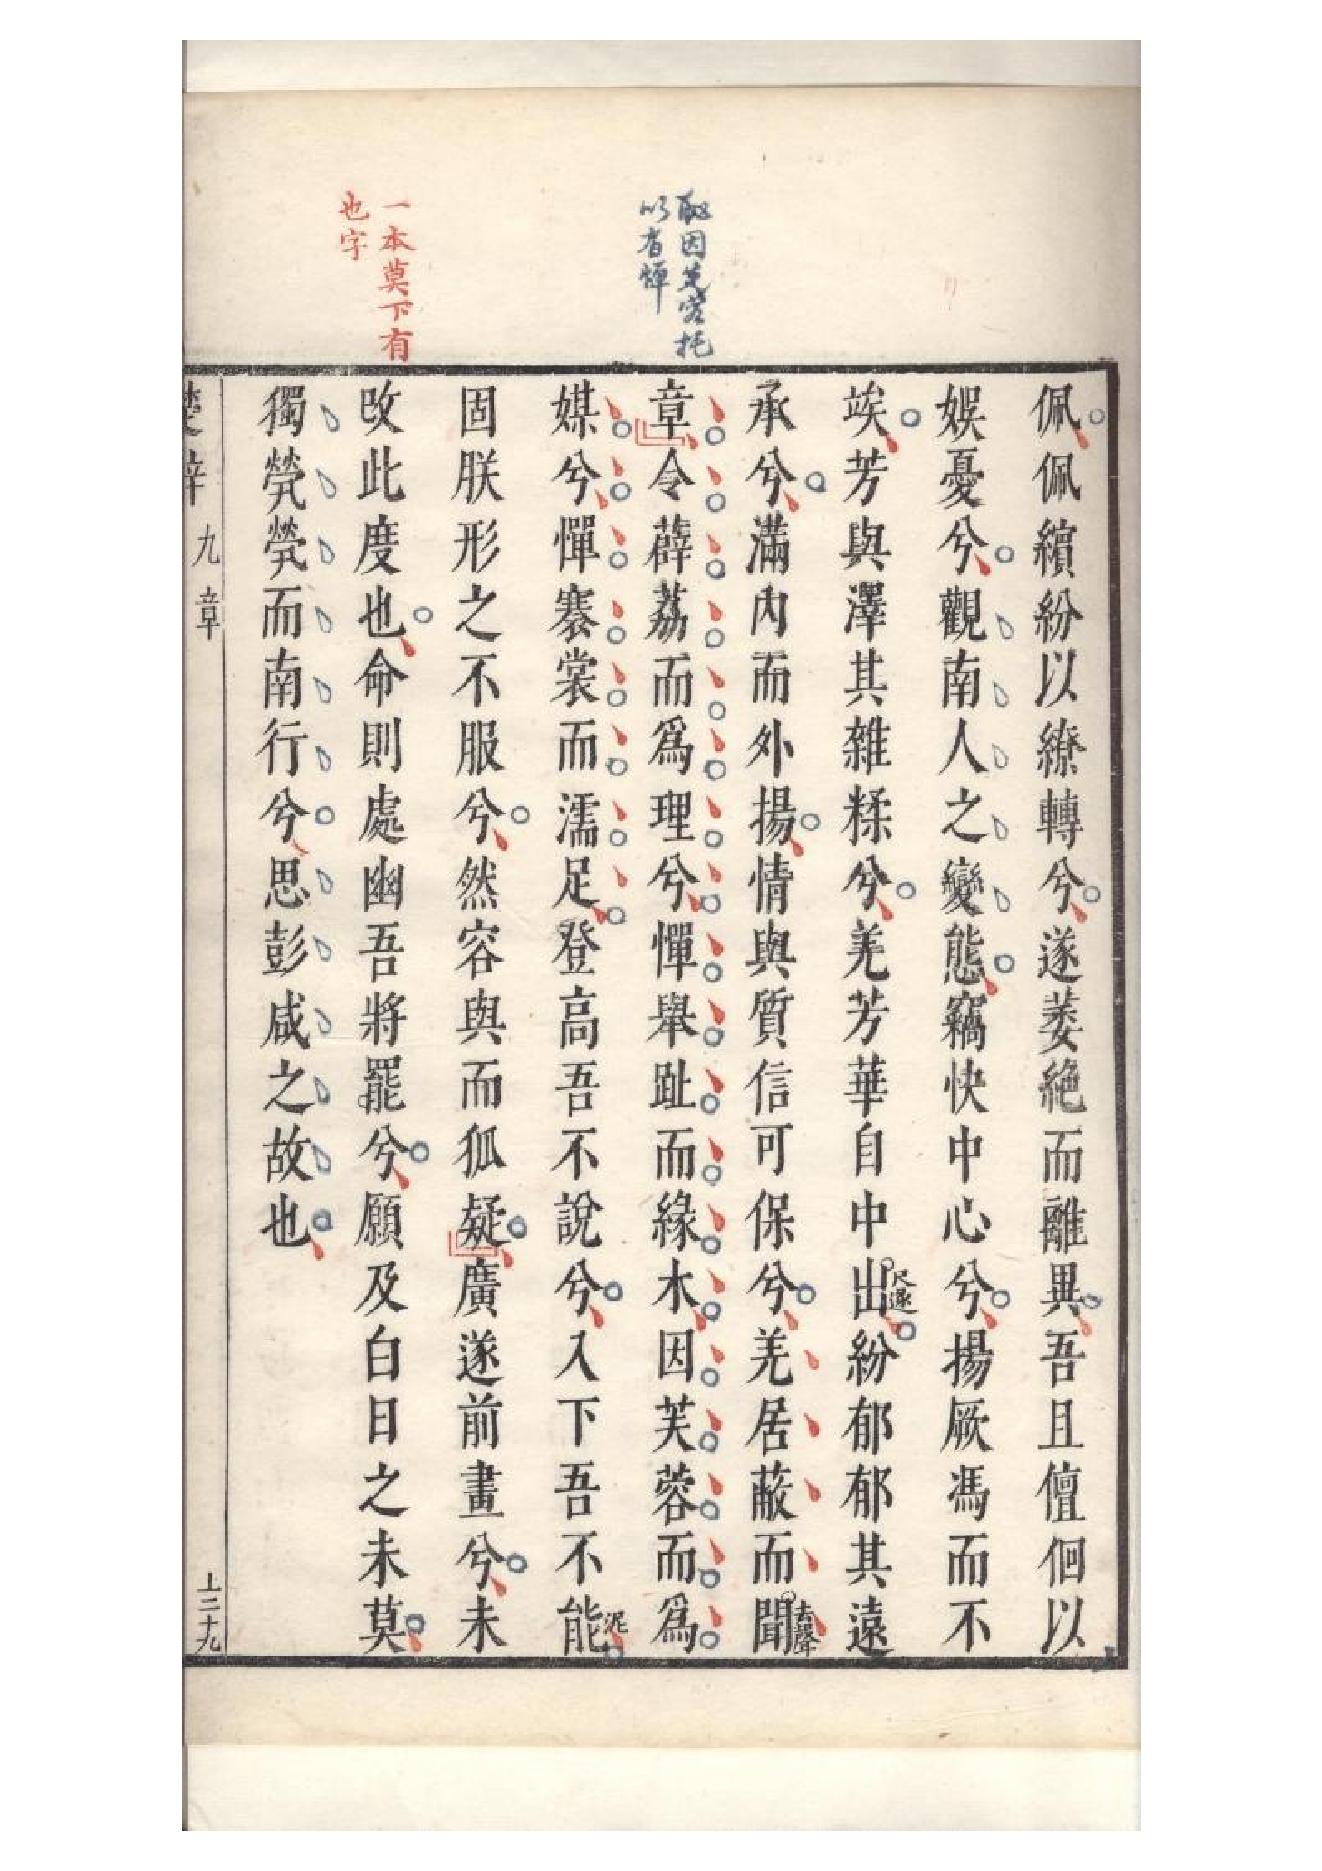 一本莫下有
也字
以者憚
佩佩繽紛以繚轉兮遂萎絶而離異吾且儃佪以
娛憂兮觀南人之變態竊快中心兮揚厥馮而不
竢芳與澤其雜糅兮羌芳華自中出尺遂紛郁郁其遠
承兮滿內而外揚情與質信可保兮羌居蔽而聞去聲
章令薜荔而爲理兮憚舉趾而緣木因芙蓉而爲
媒兮憚褰裳而濡足登高吾不說兮入下吾不能泥
固朕形之不服兮然容與而狐疑廣遂前畫兮未
改此度也命則處幽吾將罷兮願及白日之未莫
獨煢煢而南行兮思彭咸之故也
楚辭 九章 上二十九